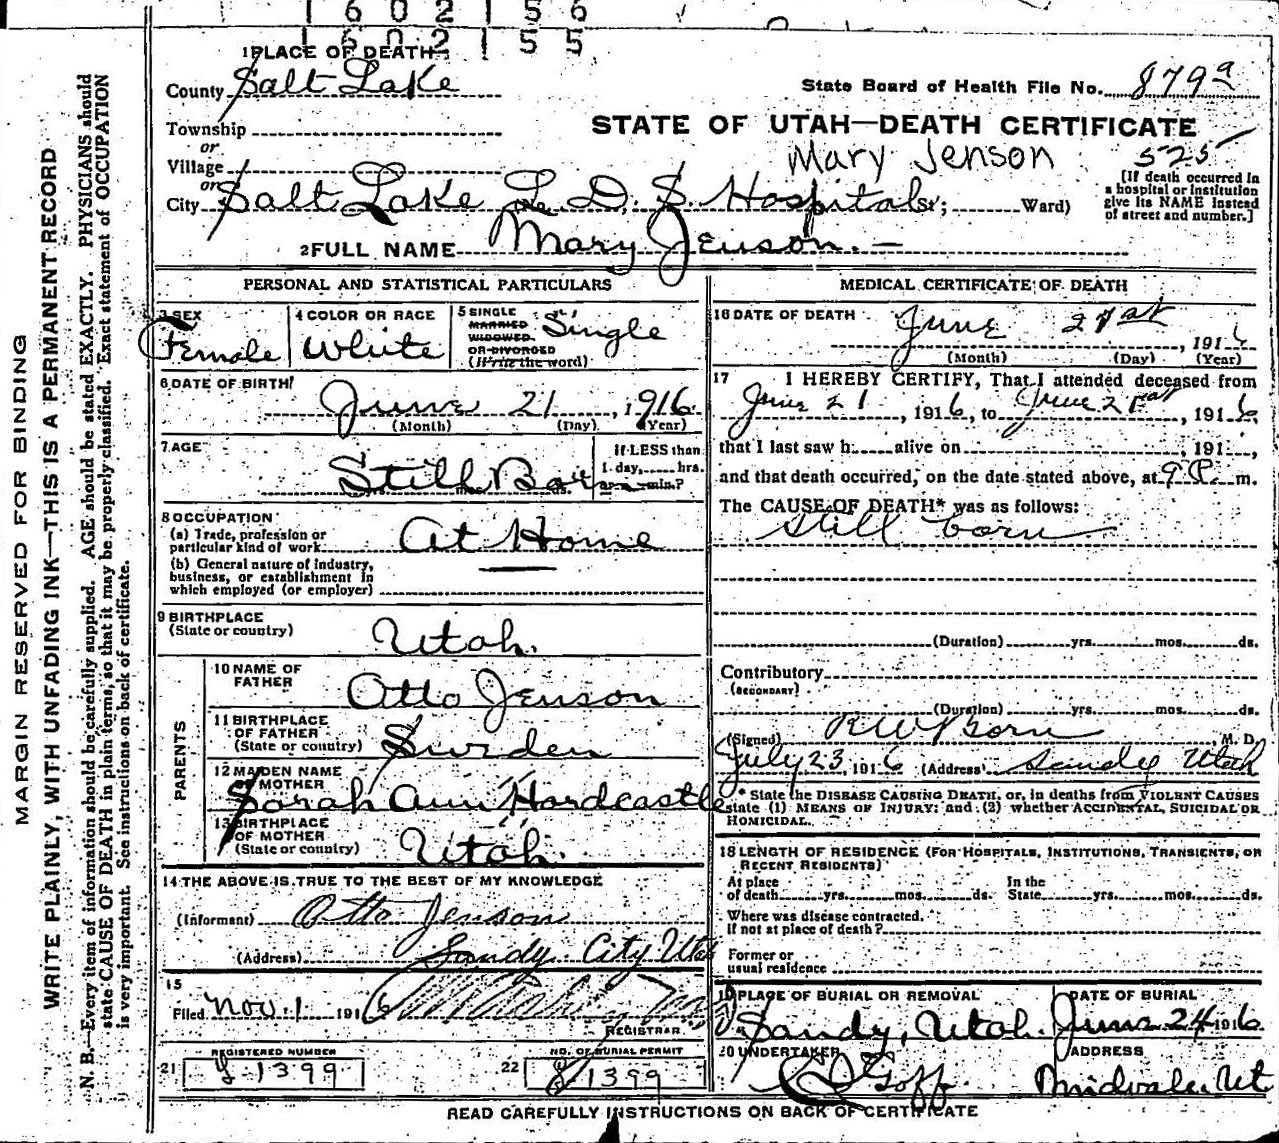 1 6 0 2 1 5 6
1 6 0 2 1 5 5
1 PLACE OF DEATH
County Salt Lake
State Board of Health File No. 879a
Township
or
STATE OF UTAH—DEATH CERTIFICATE
Village
Mary Jenson 525
or
City Salt Lake (No. L. D. S. Hospital St; Ward)
[If death occurred in a hospital or institution give its NAME instead of street and number.]
2 FULL NAME Mary Jenson. —
PERSONAL AND STATISTICAL PARTICULARS
3 SEX
Female
4 COLOR OR RACE
White
5 SINGLE
MARRIED
WIDOWED
OR DIVORCED
(Write the word)
Single
6 DATE OF BIRTH
June 21, 1916
(Month) (Day) (Year)
7 AGE
Still Born
If LESS than
1 day, hrs.
or min.?
8 OCCUPATION
(a) Trade, profession or
particular kind of work At Home
(b) General nature of industry,
business, or establishment in
which employed (or employer)
9 BIRTHPLACE
(State or country)
Utah.
PARENTS
10 NAME OF
FATHER
Otto Jenson
11 BIRTHPLACE
OF FATHER
(State or country) Sweden
12 MAIDEN NAME
OF MOTHER
Sarah Ann Hardcastle
13 BIRTHPLACE
OF MOTHER
(State or country) Utah.
14 THE ABOVE IS TRUE TO THE BEST OF MY KNOWLEDGE
(Informant) Otto Jenson
(Address) Sandy City Utah
15
Filed Nov. 1 1916
REGISTRAR
REGISTERED NUMBER
21 1399
NO. OF BURIAL PERMIT
22 1399
MEDICAL CERTIFICATE OF DEATH
16 DATE OF DEATH
June 21st, 1916
(Month) (Day) (Year)
17 I HEREBY CERTIFY, That I attended deceased from
June 21, 1916, to June 21st, 1916,
that I last saw h alive on , 191 ,
and that death occurred, on the date stated above, at 9 P. m.
The CAUSE OF DEATH* was as follows:
Still born
(Duration) yrs. mos. ds.
Contributory
(SECONDARY)
(Duration) yrs. mos. ds.
(Signed) M. D.
July 23, 1916 (Address) Sandy Utah
* State the DISEASE CAUSING DEATH, or, in deaths from VIOLENT CAUSES
state (1) MEANS OF INJURY; and (2) whether ACCIDENTAL, SUICIDAL OR
HOMICIDAL.
18 LENGTH OF RESIDENCE (FOR HOSPITALS, INSTITUTIONS, TRANSIENTS, OR
RECENT RESIDENTS)
At place
of death yrs. mos. ds.
In the
State yrs. mos. ds.
Where was disease contracted,
if not at place of death?
Former or
usual residence
19 PLACE OF BURIAL OR REMOVAL
Sandy, Utah.
DATE OF BURIAL
June 24 1916
20 UNDERTAKER
Goff
ADDRESS
Midvale, Ut
READ CAREFULLY INSTRUCTIONS ON BACK OF CERTIFICATE
MARGIN RESERVED FOR BINDING
WRITE PLAINLY, WITH UNFADING INK—THIS IS A PERMANENT RECORD
N. B.—Every item of information should be carefully supplied. AGE should be stated EXACTLY. PHYSICIANS should
state CAUSE OF DEATH in plain terms, so that it may be properly classified. Exact statement of OCCUPATION
is very important. See instructions on back of certificate.